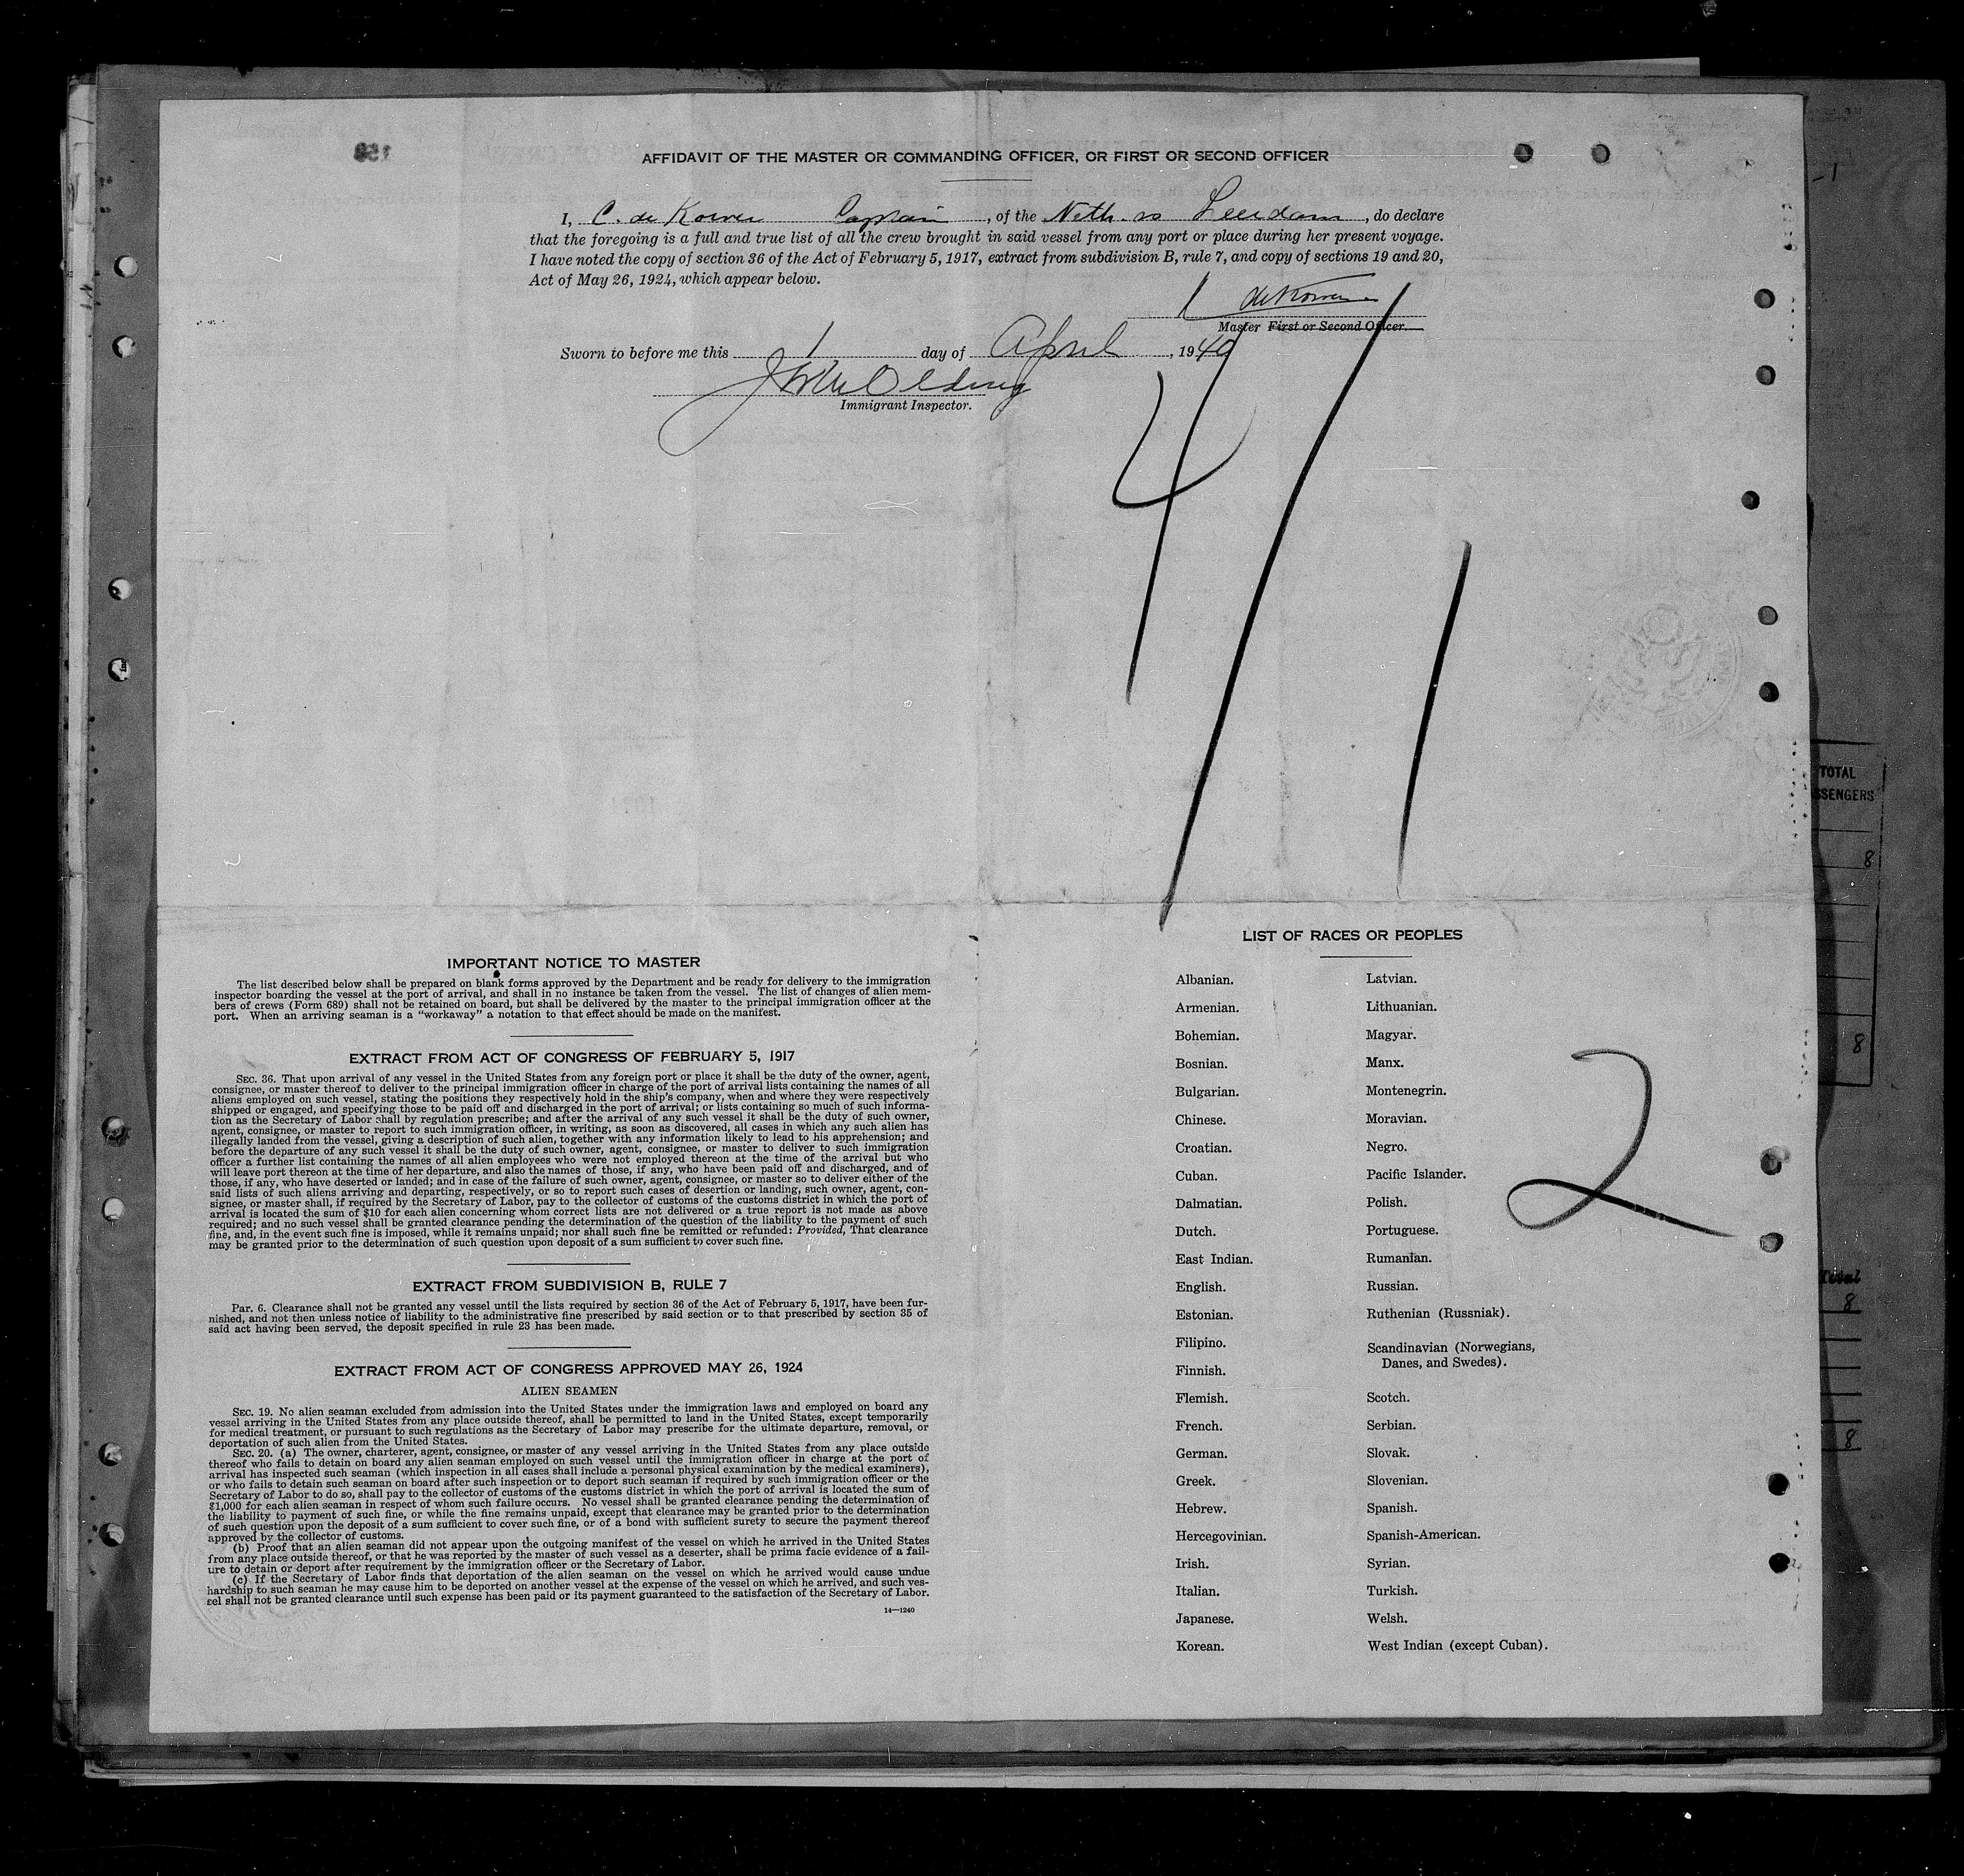 AFFIDAVIT OF THE MASTER OR COMMANDING OFFICER, OR FIRST OR SECOND OFFICER
I, C. de Koner Captain, of the Neth. ss Leerdam, do declare
that the foregoing is a full and true list of all the crew brought in said vessel from any port or place during her present voyage.
I have noted the copy of section 36 of the Act of February 5, 1917, extract from subdivision B, rule 7, and copy of sections 19 and 20,
Act of May 26, 1924, which appear below.
Master First or Second Officer.
Sworn to before me this 1 day of April, 1940
Immigrant Inspector.
4/1
IMPORTANT NOTICE TO MASTER
The list described below shall be prepared on blank forms approved by the Department and be ready for delivery to the immigration
inspector boarding the vessel at the port of arrival, and shall in no instance be taken from the vessel. The list of changes of alien mem-
bers of crews (Form 689) shall not be retained on board, but shall be delivered by the master to the principal immigration officer at the
port. When an arriving seaman is a "workaway" a notation to that effect should be made on the manifest.
EXTRACT FROM ACT OF CONGRESS OF FEBRUARY 5, 1917
SEC. 36. That upon arrival of any vessel in the United States from any foreign port or place it shall be the duty of the owner, agent,
consignee, or master thereof to deliver to the principal immigration officer in charge of the port of arrival lists containing the names of all
aliens employed on such vessel, stating the positions they respectively hold in the ship's company, when and where they were respectively
shipped or engaged, and specifying those to be paid off and discharged in the port of arrival; or lists containing so much of such informa-
tion as the Secretary of Labor shall by regulation prescribe; and after the arrival of any such vessel it shall be the duty of such owner,
agent, consignee, or master to report to such immigration officer, in writing, as soon as discovered, all cases in which any such alien has
illegally landed from the vessel, giving a description of such alien, together with any information likely to lead to his apprehension; and
before the departure of any such vessel it shall be the duty of such owner, agent, consignee, or master to deliver to such immigration
officer a further list containing the names of all alien employees who were not employed thereon at the time of the arrival but who
will leave port thereon at the time of her departure, and also the names of those, if any, who have been paid off and discharged, and of
those, if any, who have deserted or landed; and in case of the failure of such owner, agent, consignee, or master so to deliver either of the
said lists of such aliens arriving and departing, respectively, or so to report such cases of desertion or landing, such owner, agent, con-
signee, or master shall, if required by the Secretary of Labor, pay to the collector of customs of the customs district in which the port of
arrival is located the sum of $10 for each alien concerning whom correct lists are not delivered or a true report is not made as above
required; and no such vessel shall be granted clearance pending the determination of the question of the liability to the payment of such
fine, and, in the event such fine is imposed, while it remains unpaid; nor shall such fine be remitted or refunded: Provided, That clearance
may be granted prior to the determination of such question upon deposit of a sum sufficient to cover such fine.
EXTRACT FROM SUBDIVISION B, RULE 7
Par. 6. Clearance shall not be granted any vessel until the lists required by section 36 of the Act of February 5, 1917, have been fur-
nished, and not then unless notice of liability to the administrative fine prescribed by said section or to that prescribed by section 35 of
said act having been served, the deposit specified in rule 23 has been made.
EXTRACT FROM ACT OF CONGRESS APPROVED MAY 26, 1924
ALIEN SEAMEN
SEC. 19. No alien seaman excluded from admission into the United States under the immigration laws and employed on board any
vessel arriving in the United States from any place outside thereof, shall be permitted to land in the United States, except temporarily
for medical treatment, or pursuant to such regulations as the Secretary of Labor may prescribe for the ultimate departure, removal, or
deportation of such alien from the United States.
SEC. 20. (a) The owner, charterer, agent, consignee, or master of any vessel arriving in the United States from any place outside
thereof who fails to detain on board any alien seaman employed on such vessel until the immigration officer in charge at the port of
arrival has inspected such seaman (which inspection in all cases shall include a personal physical examination by the medical examiners),
or who fails to detain such seaman on board after such inspection or to deport such seaman if required by such immigration officer or the
Secretary of Labor to do so, shall pay to the collector of customs of the customs district in which the port of arrival is located the sum of
$1,000 for each alien seaman in respect of whom such failure occurs. No vessel shall be granted clearance pending the determination of
the liability to payment of such fine, or while the fine remains unpaid, except that clearance may be granted prior to the determination
of such question upon the deposit of a sum sufficient to cover such fine, or of a bond with sufficient surety to secure the payment thereof
approved by the collector of customs.
(b) Proof that an alien seaman did not appear upon the outgoing manifest of the vessel on which he arrived in the United States
from any place outside thereof, or that he was reported by the master of such vessel as a deserter, shall be prima facie evidence of a fail-
ure to detain or deport after requirement by the immigration officer or the Secretary of Labor.
(c) If the Secretary of Labor finds that deportation of the alien seaman on the vessel on which he arrived would cause undue
hardship to such seaman he may cause him to be deported on another vessel at the expense of the vessel on which he arrived, and such ves-
sel shall not be granted clearance until such expense has been paid or its payment guaranteed to the satisfaction of the Secretary of Labor.
14—1240
LIST OF RACES OR PEOPLES
Albanian.
Armenian.
Bohemian.
Bosnian.
Bulgarian.
Chinese.
Croatian.
Cuban.
Dalmatian.
Dutch.
East Indian.
English.
Estonian.
Filipino.
Finnish.
Flemish.
French.
German.
Greek.
Hebrew.
Hercegovinian.
Irish.
Italian.
Japanese.
Korean.
Latvian.
Lithuanian.
Magyar.
Manx.
Montenegrin.
Moravian.
Negro.
Pacific Islander.
Polish.
Portuguese.
Rumanian.
Russian.
Ruthenian (Russniak).
Scandinavian (Norwegians,
Danes, and Swedes).
Scotch.
Serbian.
Slovak.
Slovenian.
Spanish.
Spanish-American.
Syrian.
Turkish.
Welsh.
West Indian (except Cuban).
2
TOTAL
SSENGERS
8
8
Total
8
8